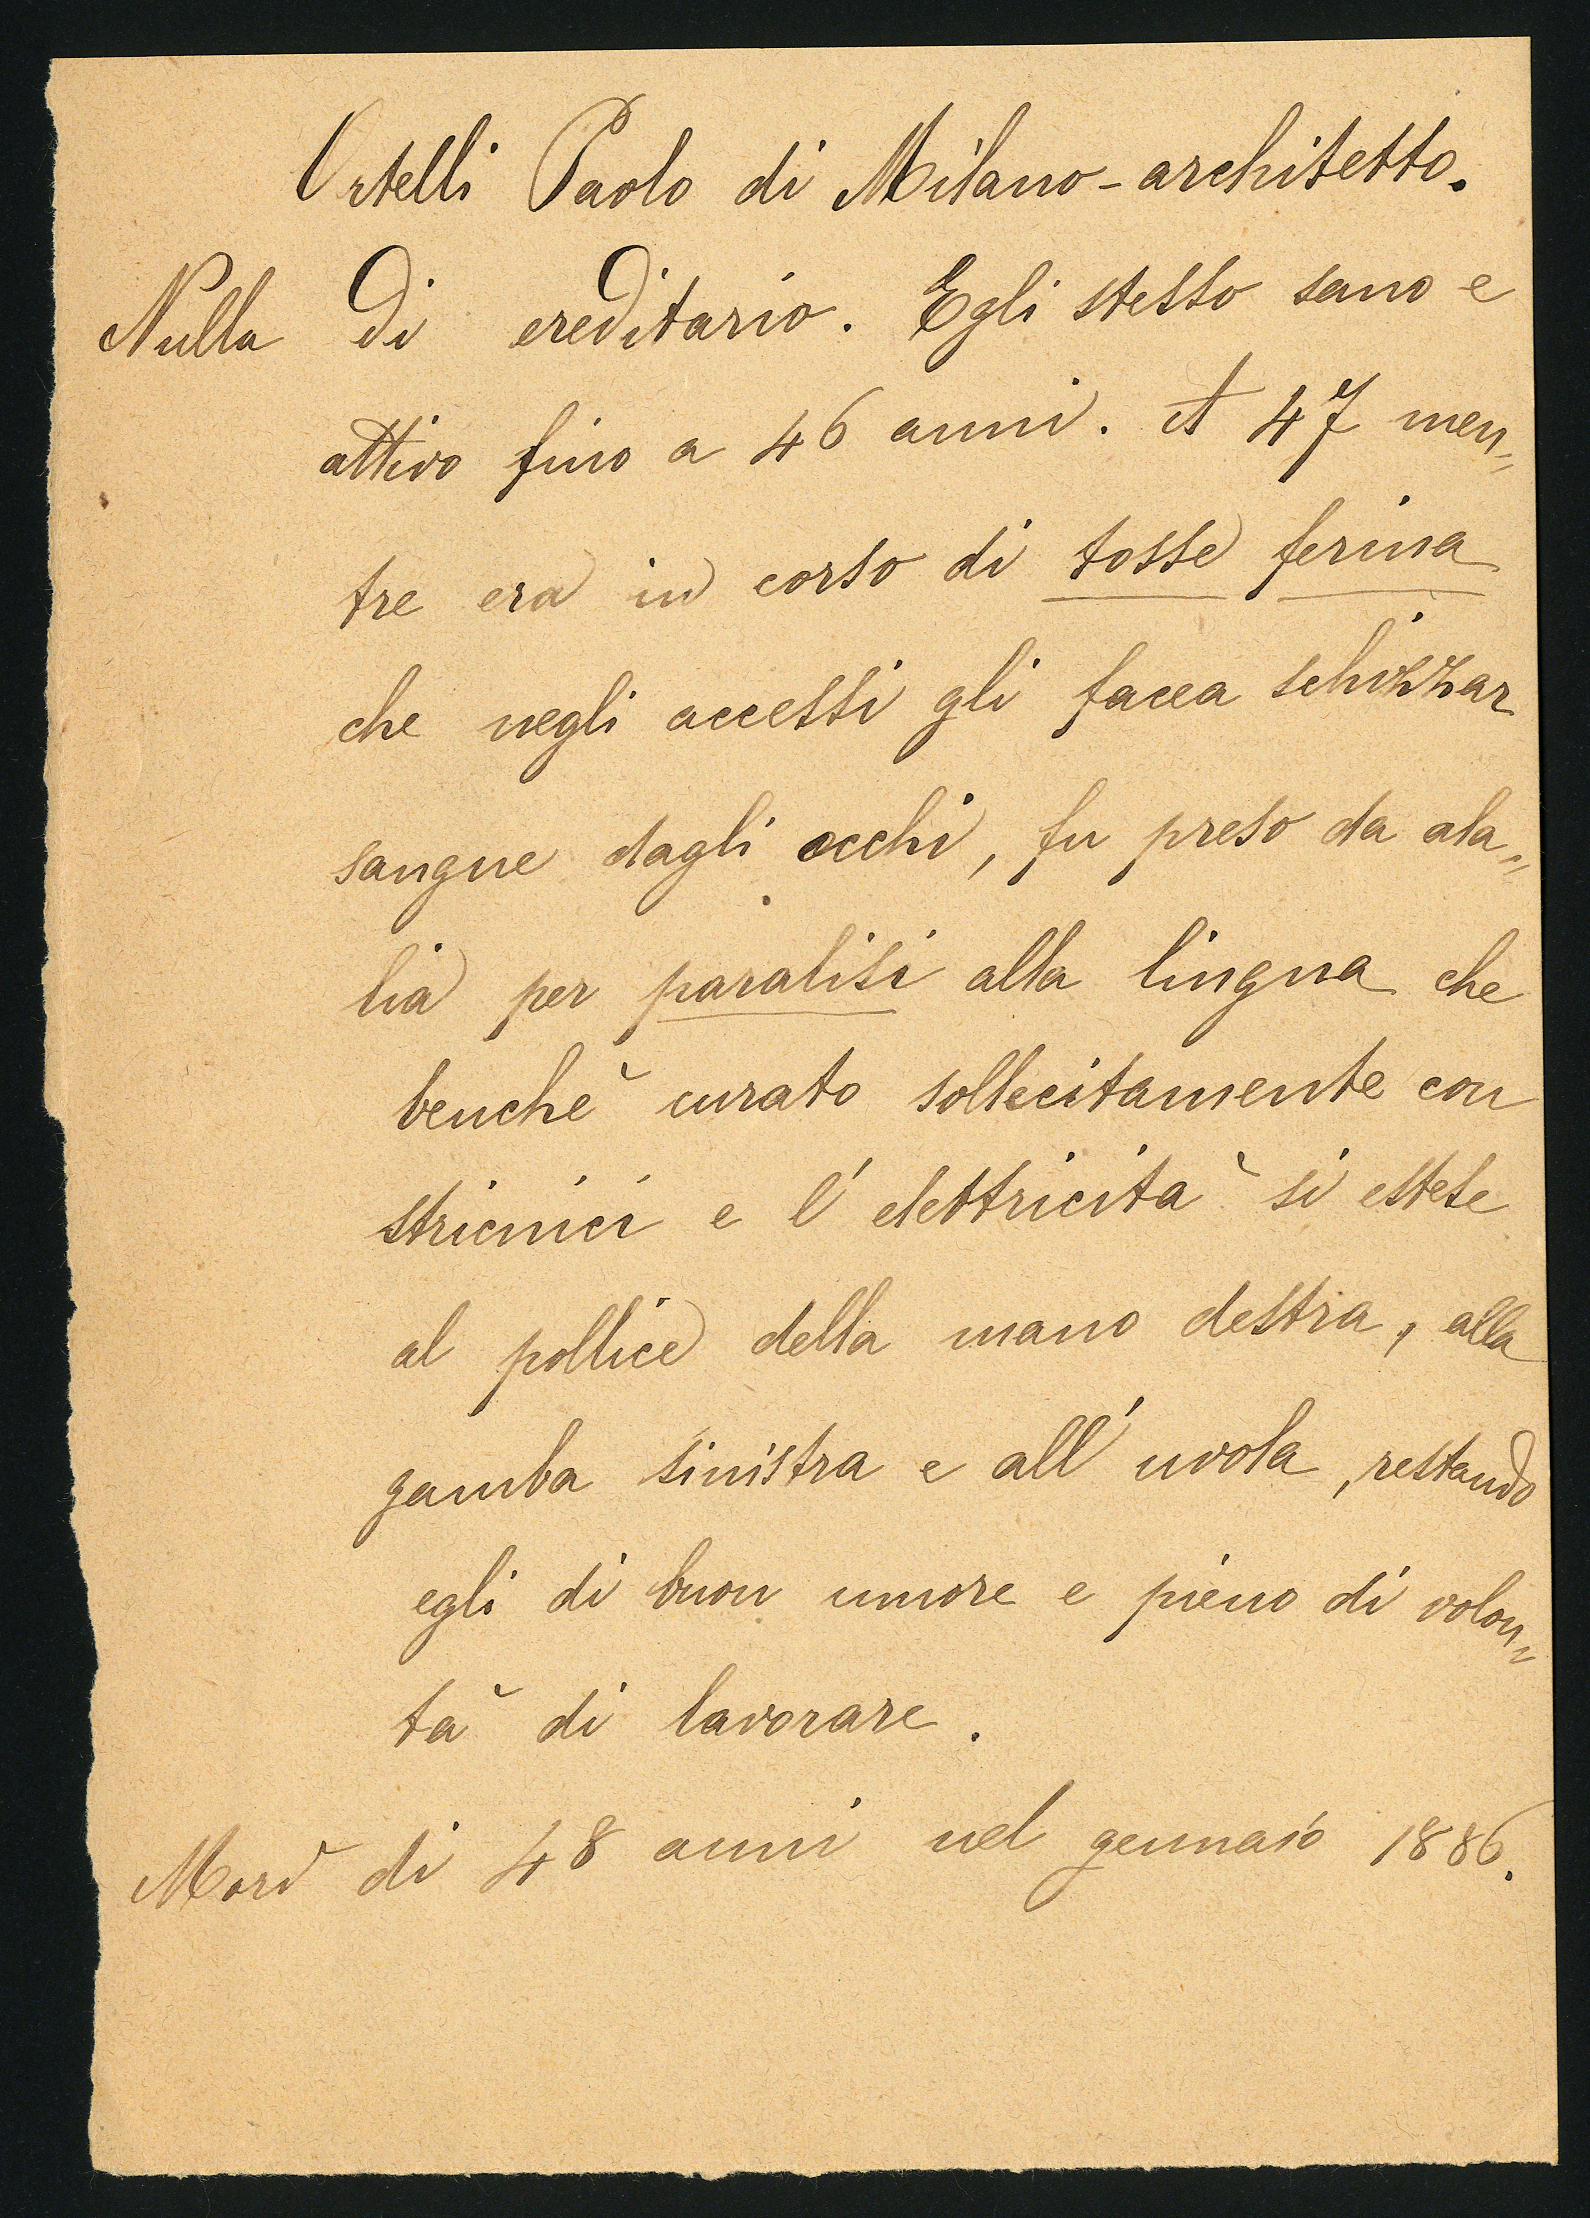 Ortelli Paolo di Milano - architetto.
Nulla di ereditario. Egli stesso sano e
attivo fino a 46 anni. A 47 men=
tre era in corso di tosse ferina
che negli accessi gli facea schizzar
sangue dagli occhi, fu preso da ala=
lia per paralisi alla lingua che
benchè curato sollecitamente con
stricnici e l'elettricità si estese
al pollice della mano destra, alla
gamba sinistra e all'uvola, restando
egli di buon umore e pieno di volon=
tà di lavorare.
Morì di 48 anni nel gennaio 1886.